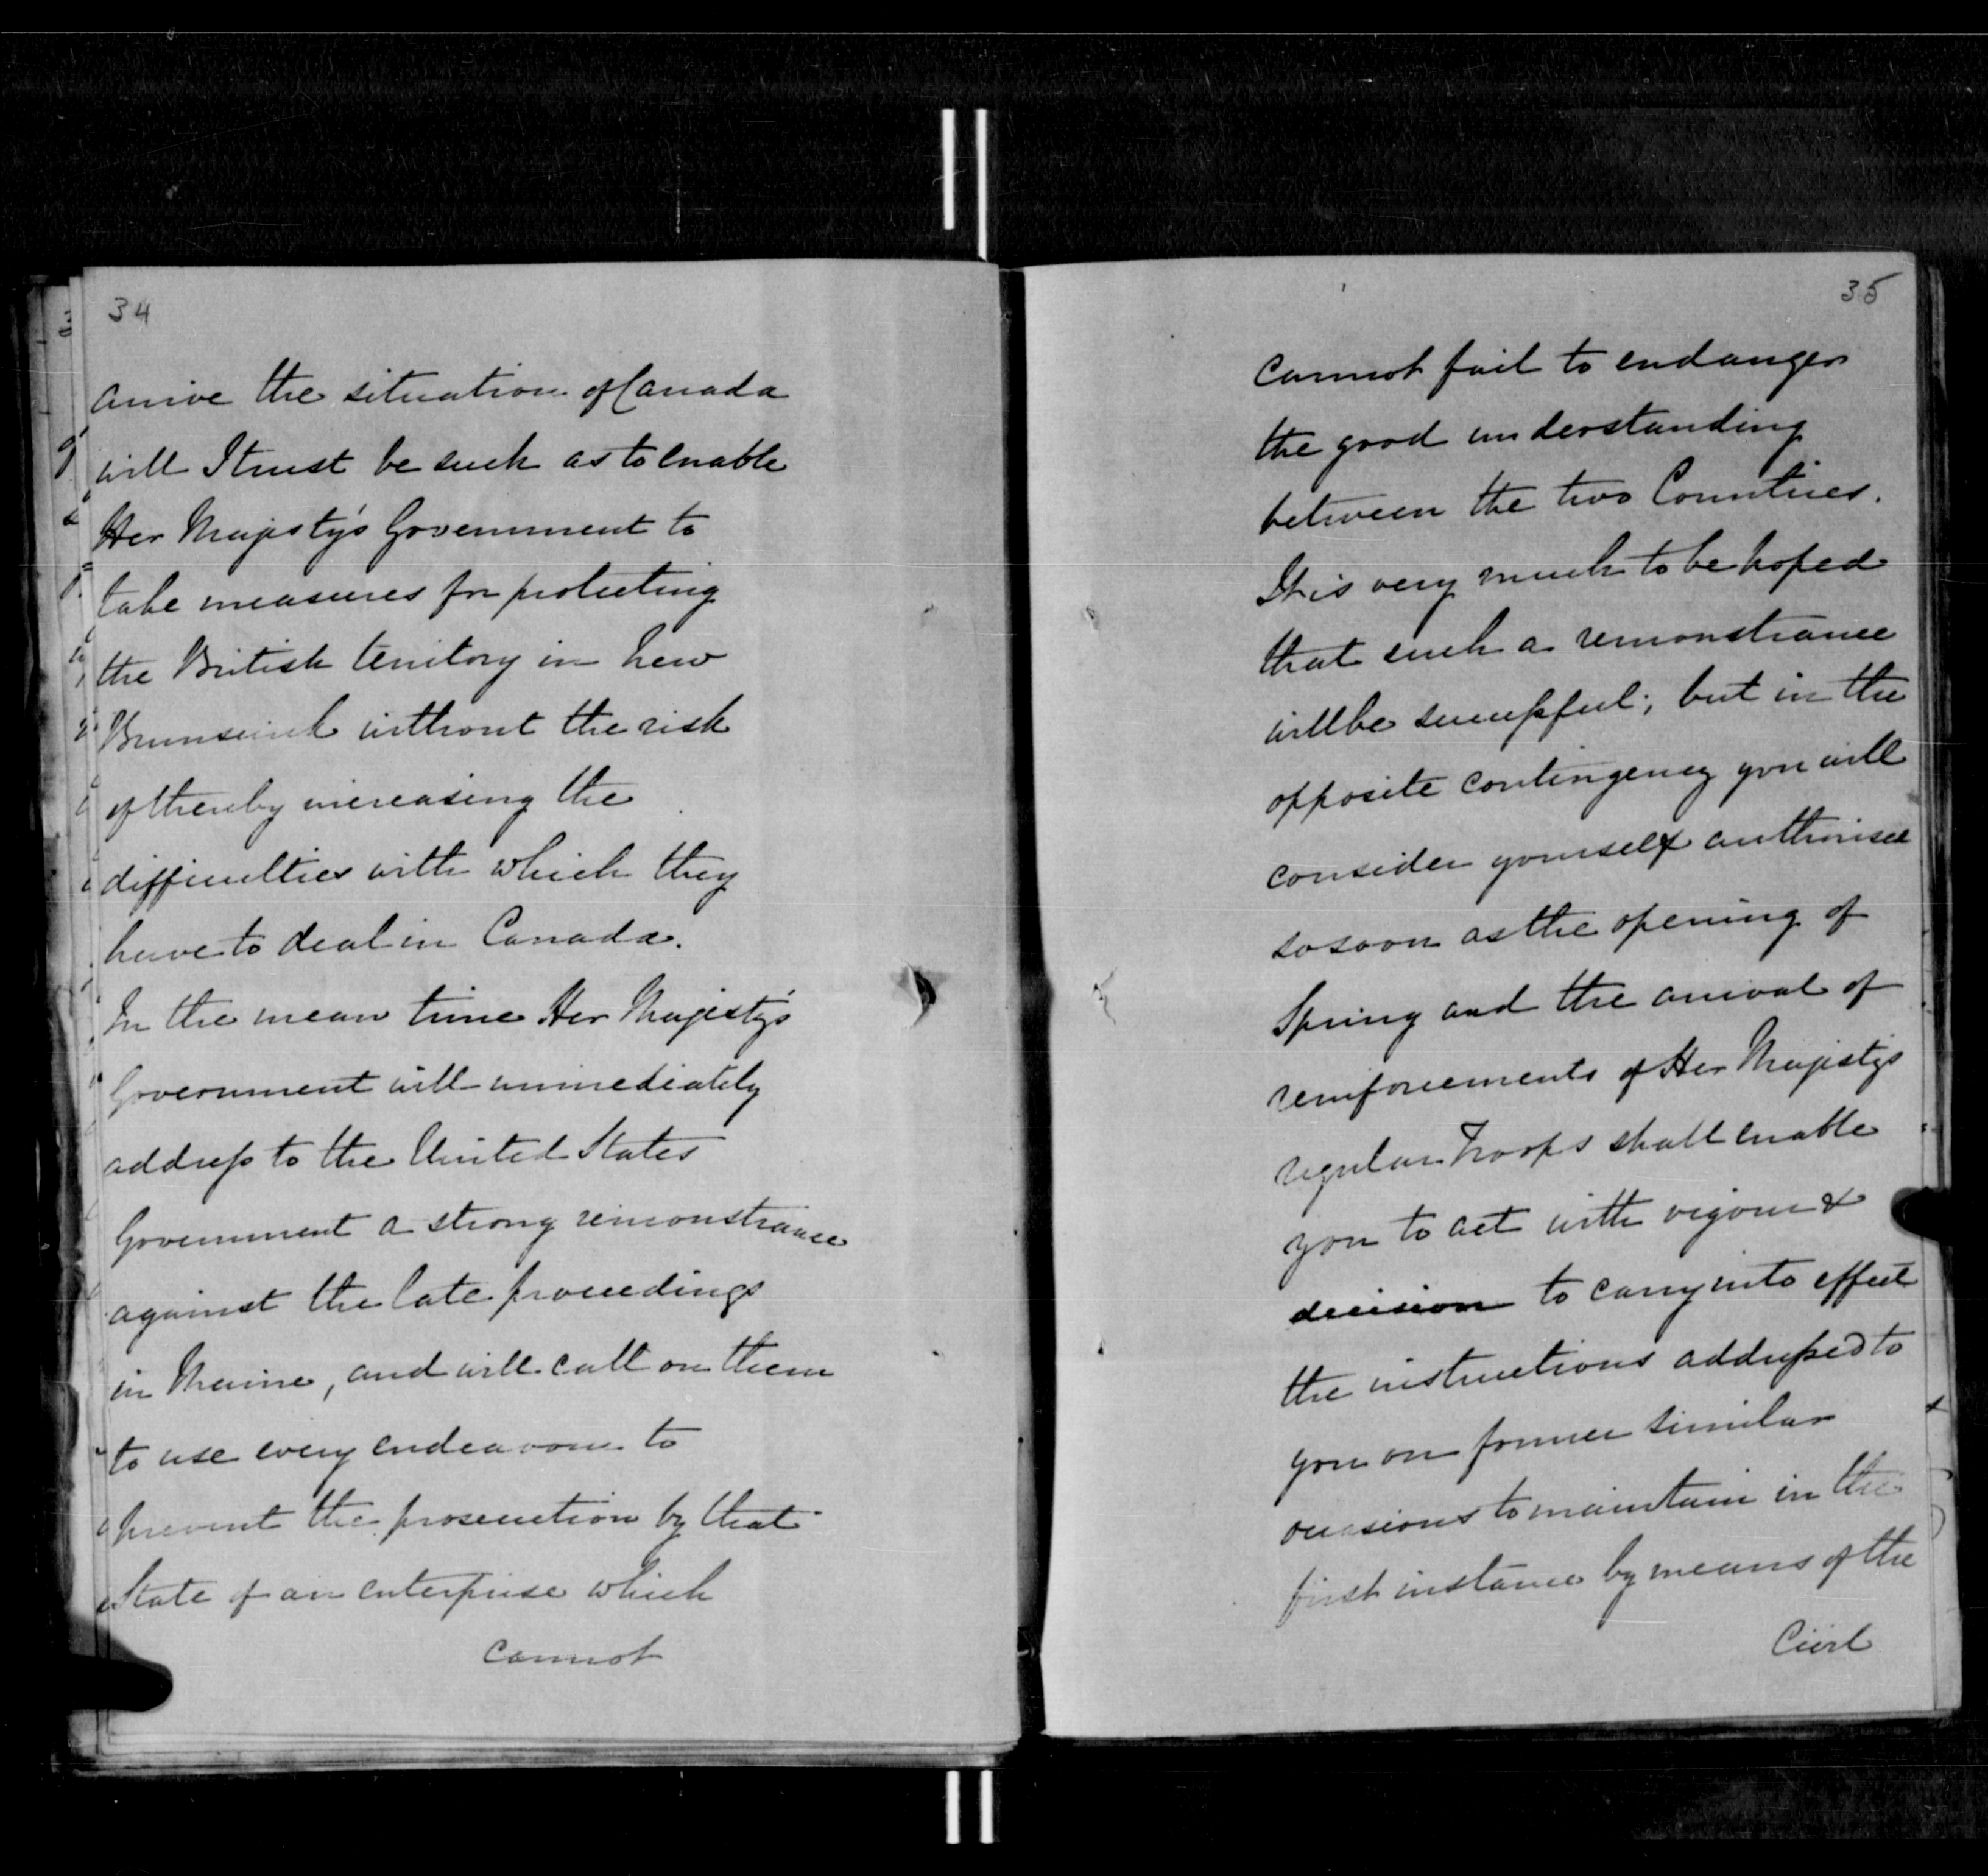 34
arrive the situation of Canada
will I trust be such as to enable
Her Majesty's Government to
take measures for protecting
the British territory in New
Brunswick without the risk
of thereby increasing the
difficulties with which they
have to deal in Canada.
In the mean time Her Majesty's
Government will immediately
address to the United States
Government a strong remonstrance
against the late proceedings
in Maine, and will call on them
to use every endeavour to
prevent the prosecution by that
State of an enterprise which
cannot
35
cannot fail to endanger
the good understanding
between the two Countries.
It is very much to be hoped
that such a remonstrance
will be successful; but in the
opposite contingency you will
consider yourself authorised
so soon as the opening of
Spring and the arrival of
reinforcements of Her Majesty's
regular Troops shall enable
you to act with vigour &
decision to carry into effect
the instructions addressed to
you on former similar
occasions to maintain in the
first instance by means of the
Civil